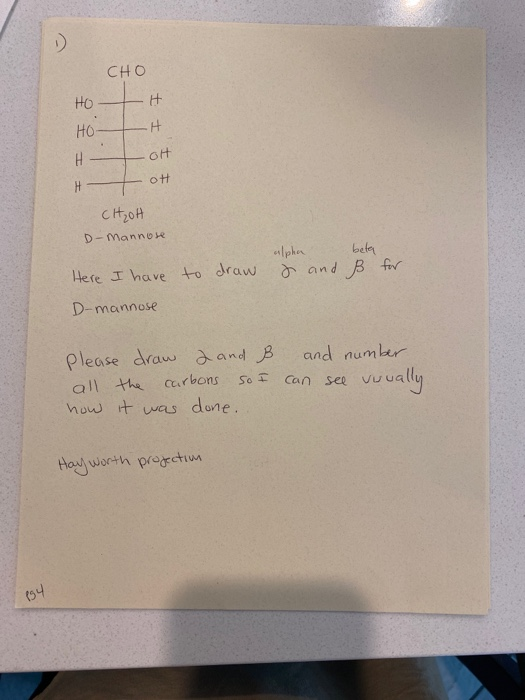 1)
CHO
HO H
HO H
H OH
H OH
CH2OH
D-Mannose
alpha beta
Here I have to draw α and β for
D-mannose
please draw α and β and number
all the carbons so I can see vuually
how it was done.
Hayworth projection
pg4